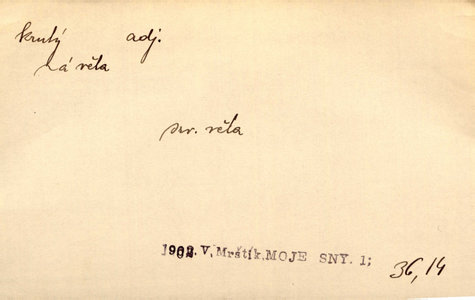 krutý adj.
-á věta
srv. věta
1902. V. Mrštík, MOJE SNY. 1;
36,14